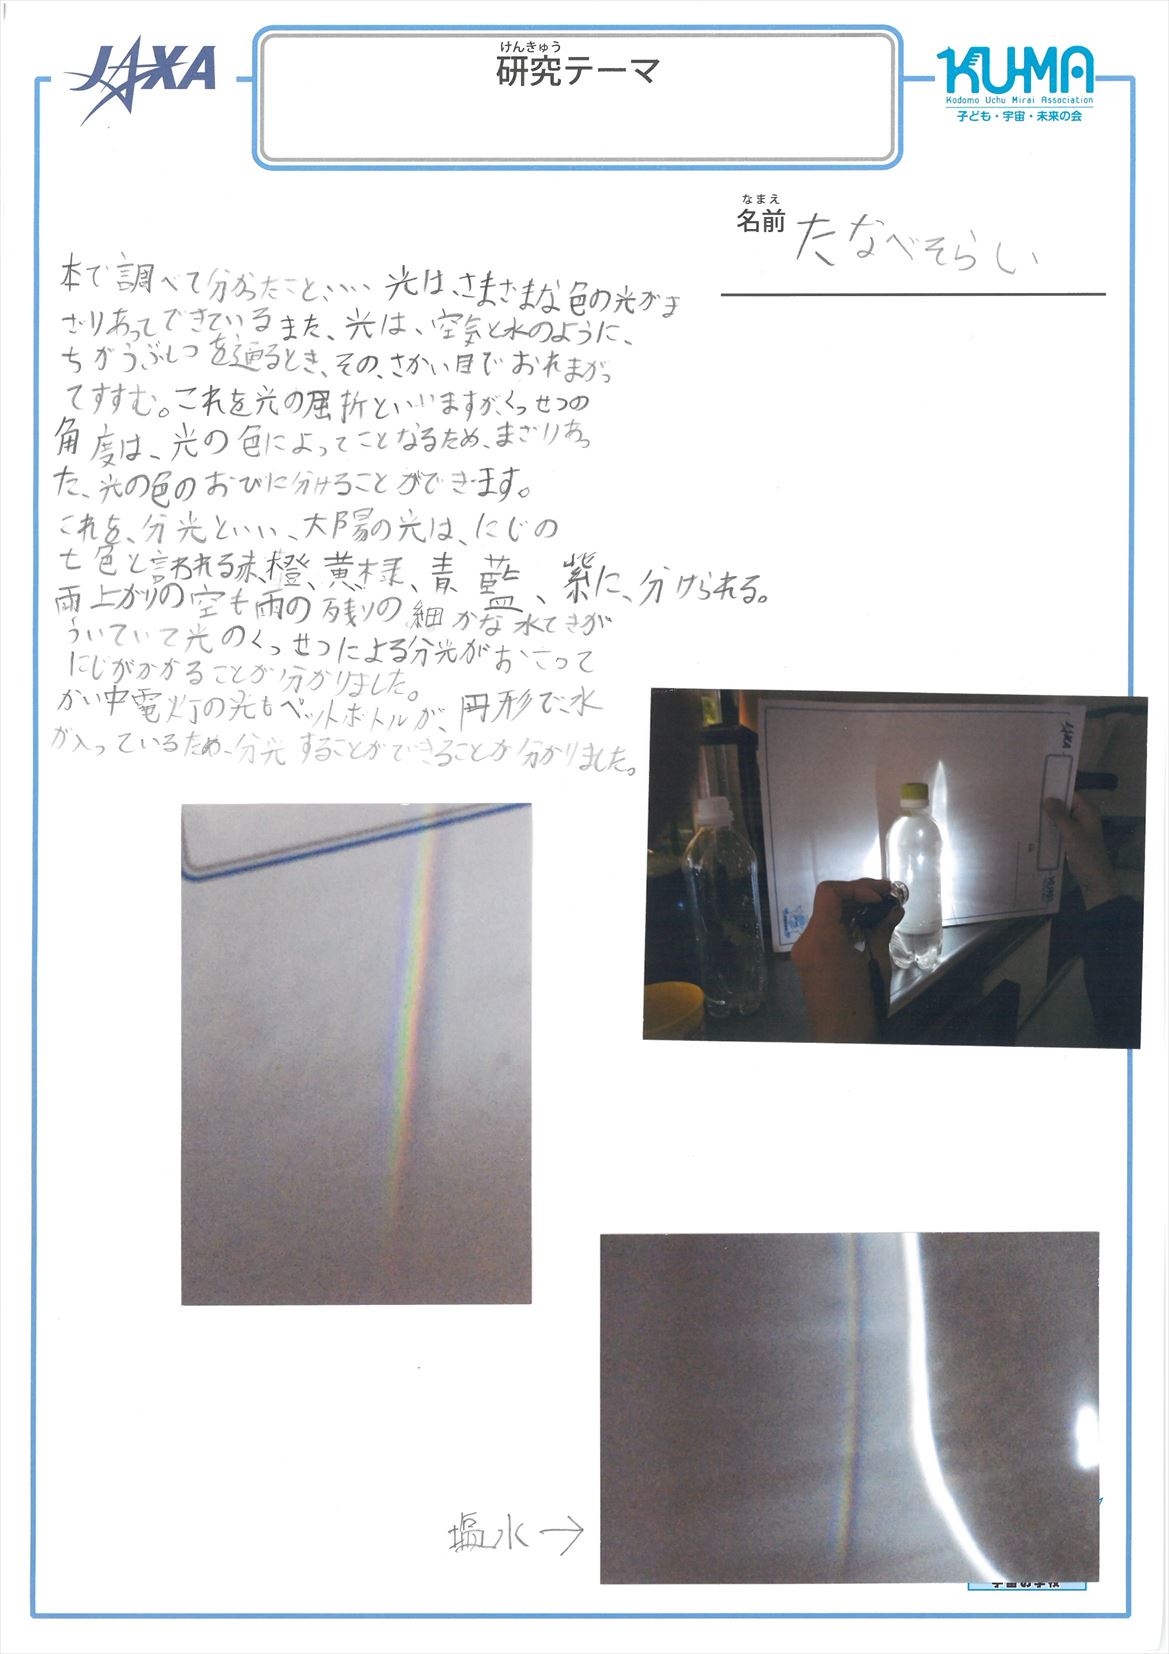 JAXA
けんきゅう
研究テーマ
KU-MA
Kodomo Uchu Mirai Association
子ども・宇宙・未来の会
なまえ
名前 たなべそらしい
本で調べて分かったこと、、、、光は、さまざまな色の光がま
ざりあってできているまた、光は、空気と水のように、
ちがうぶしつを通るとき、その、さかい目でおれまがっ
てすすむ。これを光の屈折といいますが、くっせつの
角度は、光の色によってことなるため、まざりあっ
た、光の色のおびに分けることができます。
これを、分光といい、太陽の光は、にじの
七色と言われる赤、橙、黄、緑、青、藍、紫に、分けられる。
雨上がりの空も雨の残りの細かな水てきが
ういていて光のくっせつによる分光がおこって
にじがかかることが分かりました。
かい中電灯の光もペットボトルが、円形で、水
が入っているため、分光することができることが分かりました。
JAXA
KU-MA
塩水→
宇宙の学校